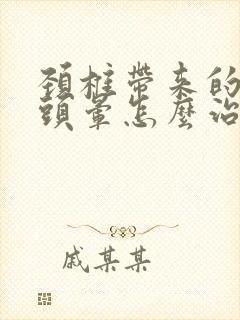 頚椎帶来的
頭暈怎麼治
戚某某